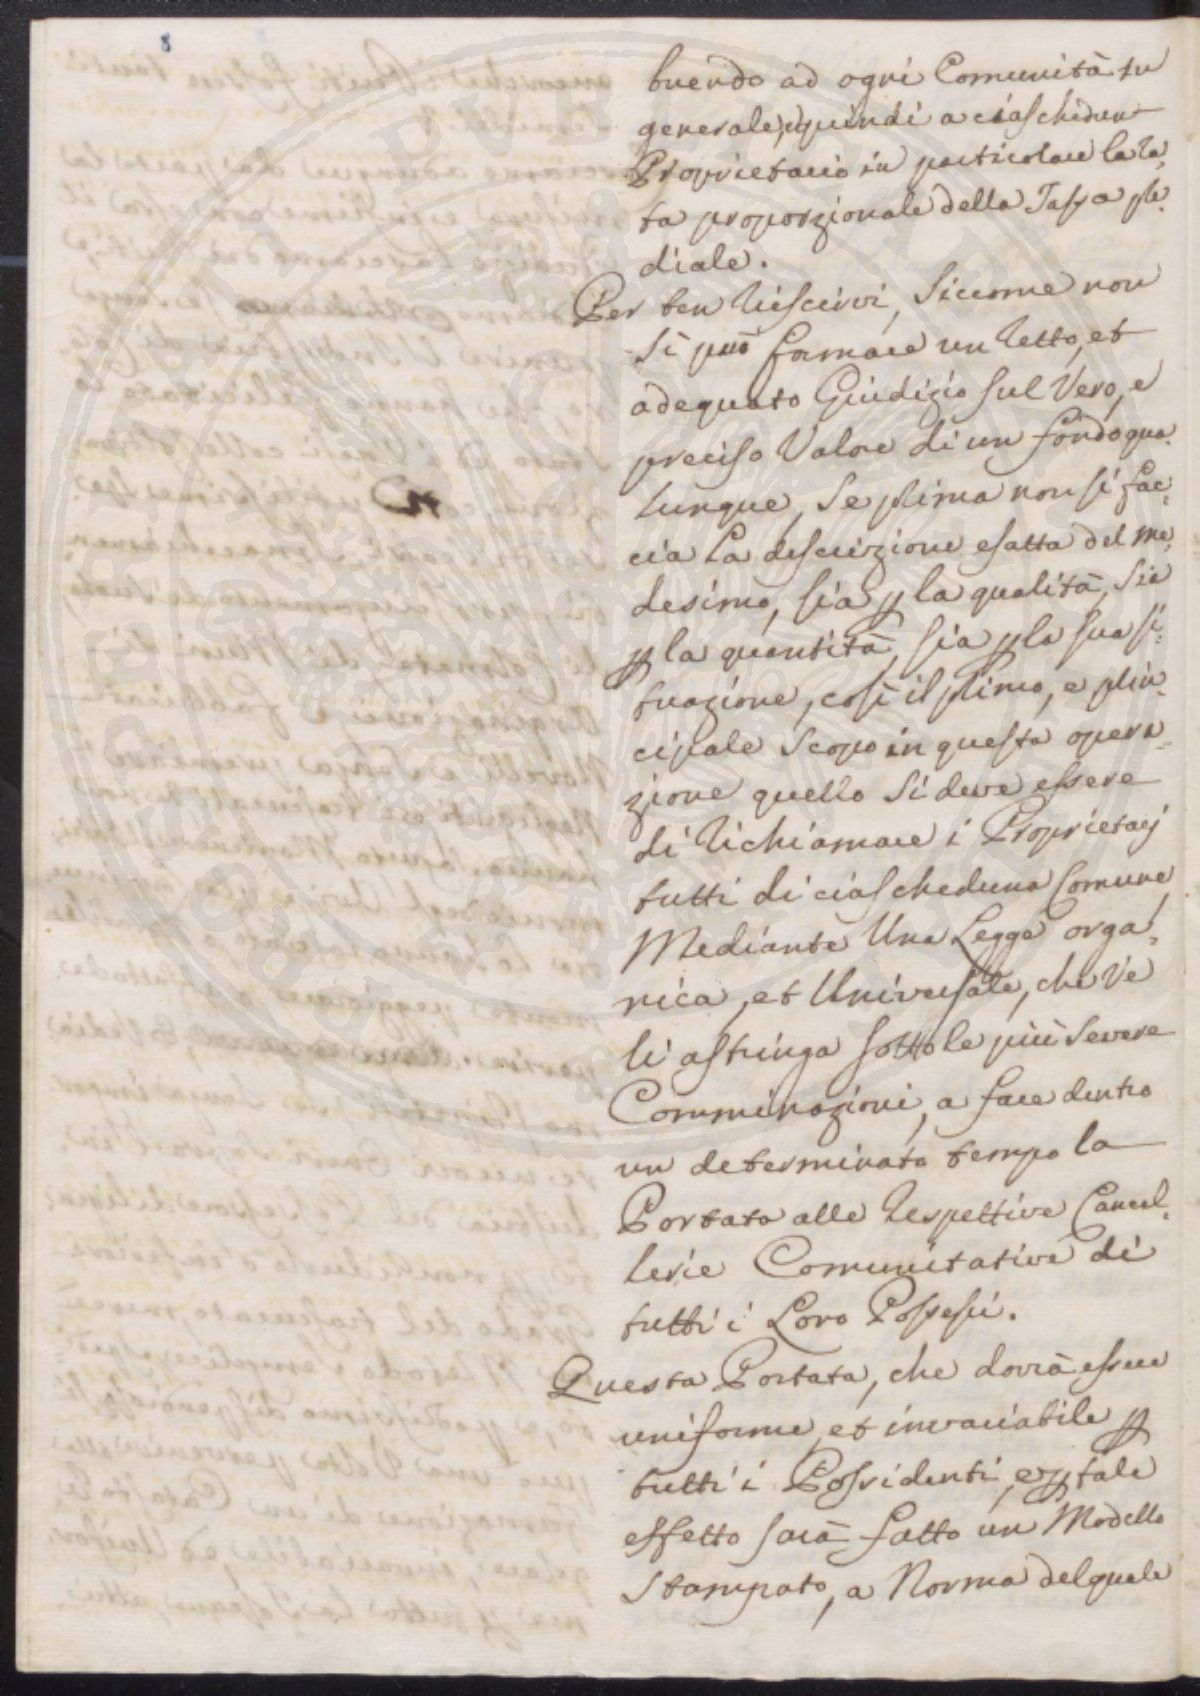 8
buendo ad ogni Comunità in
generale, e quindi a ciascheduno
Proprietario in particolare la ra,
ta proporzionale della Tassa pre,
diale.
Per ben riescirvi, siccome non
si può formare un retto, et
adequato Giudizio sul Vero, e
preciso Valore di un fondo qua,
lunque, se prima non si fac,
cia la descrizione esatta del me,
desimo, sia p la qualità, sia
p la quantità, sia p la sua si,
tuazione, così il primo, e prin,
cipale scopo in questa opera,
zione quello si deve essere
di richiamare i Proprietarj
tutti di ciascheduna Comune,
Mediante Una Legge orga,
nica, et Universale, che ve
li astringa sotto le più severe
Comminazioni, a fare dentro
un determinato tempo la
Portata alle respettive Cancel,
lerie Comunitative di
tutti i Loro Possessi.
Questa Portata, che dovrà essere
uniforme, et invariabile p
tutti i Possidenti, e p tale
effetto sarà fatto un Modello
stampato, a Norma del quale